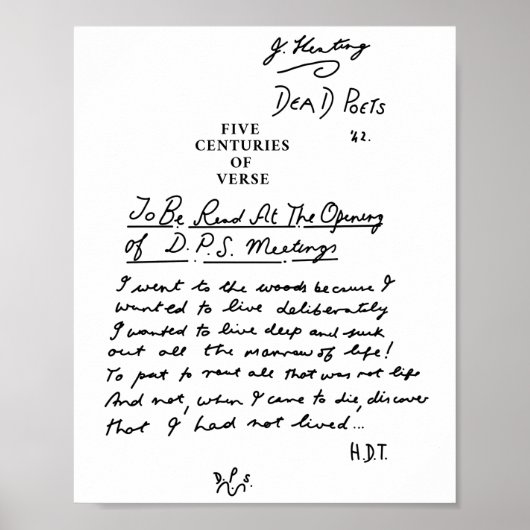 J. Keating
DEAD POETS
'42.
FIVE
CENTURIES
OF
VERSE
To Be Read At The Opening
of D.P.S. Meetings
I went to the woods because I
wanted to live deliberately
I wanted to live deep and suck
out all the marrow of life!
To put to rout all that was not life
And not, when I came to die, discover
that I had not lived...
H.D.T.
D.P.S.